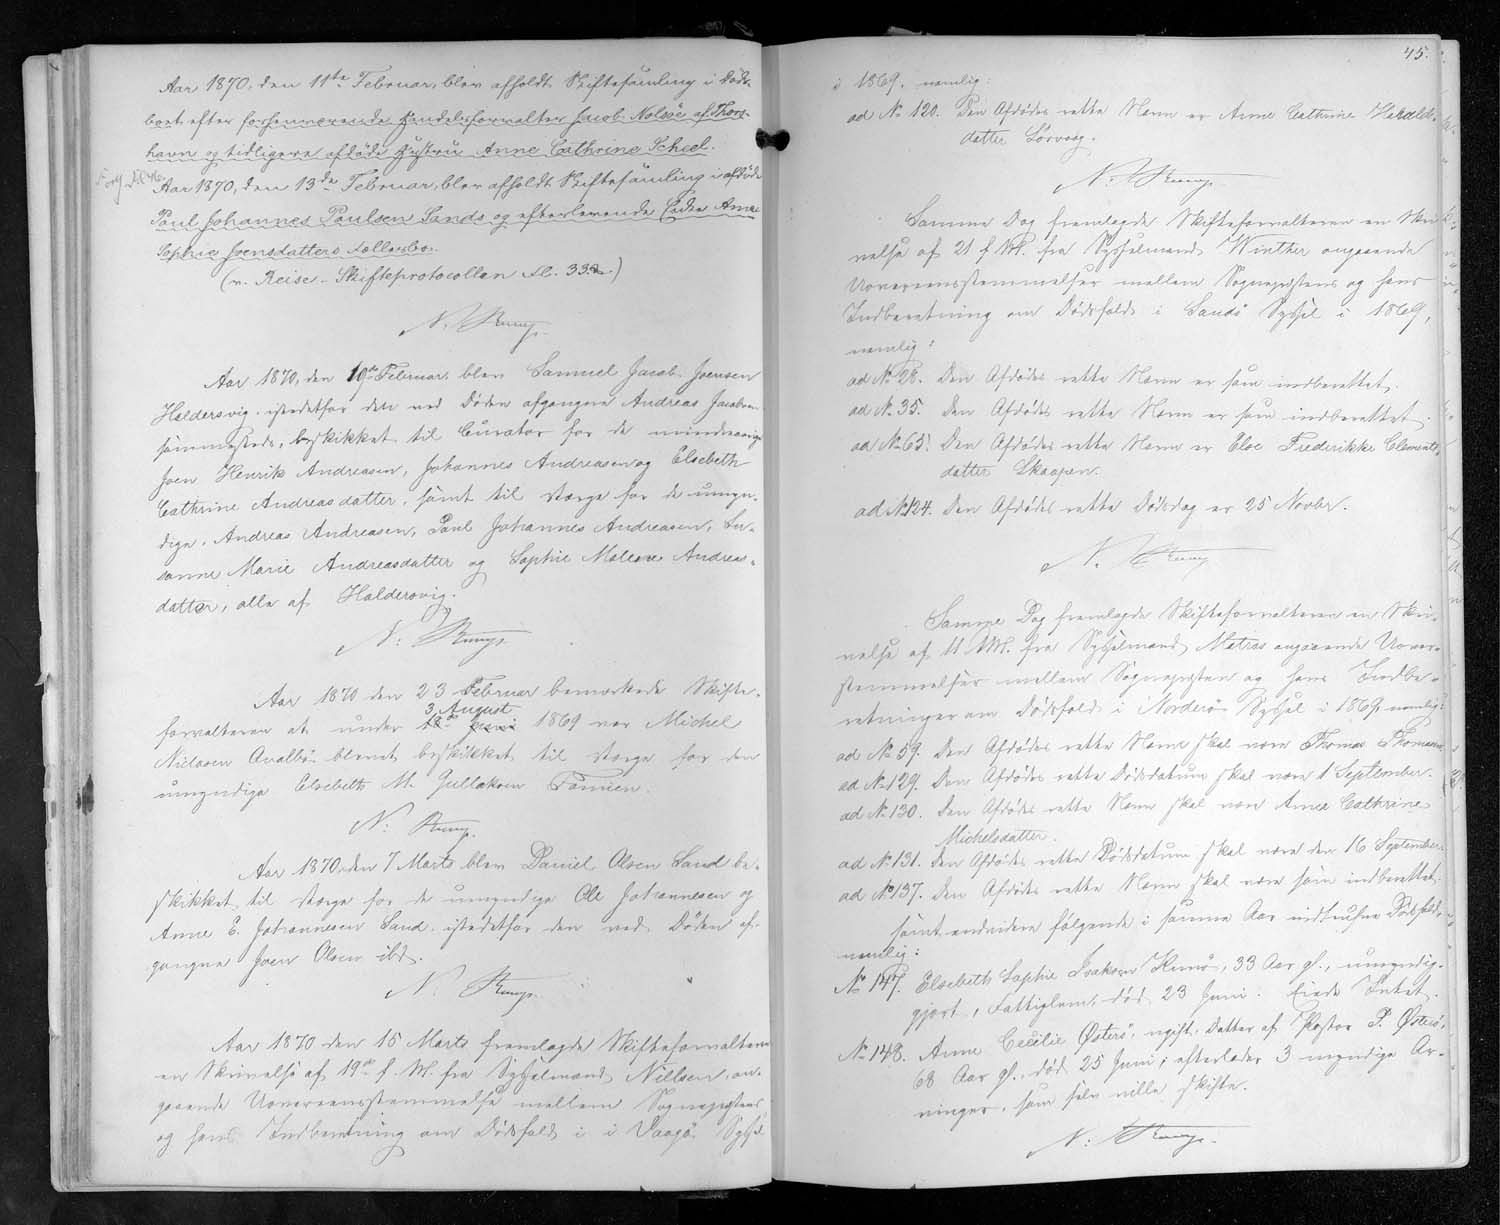 Aar 1870, den 11te Februar, blev afholdt Skiftesamling i Døds-
boet efter forhenværende Handelsforvalter Jacob Nolsöe af Thors-
havn og tidligere afdøde Hustru Anne Cathrine Scheel.
Aar 1870, den 13de Februar, blev afholdt Skiftesamling i afdøde
Poul Johannes Poulsen Sands og efterlevende Enke Anne
Sophie Joensdatters Fællesbo.
(v. Reise-Skifteprotocollen Fl. 332.)
N. Rump.
Aar 1870, den 19de Februar, blev Samuel Jacob Joensen
Haldersvig istedetfor den ved Døden afgangne Andreas Jacobsen
sammesteds, beskikket til Curator for de mindreaarige
Joen Henrik Andreasen, Johannes Andreasen og Elsebeth
Cathrine Andreasdatter, samt til Værge for de umyn-
dige, Andreas Andreasen, Poul Johannes Andreasen, Su-
sanne Marie Andreasdatter og Sophie Malene Andreas-
datter, alle af Haldersvig.
N. Rump.
Aar 1870 den 23 Februar bemærkede Skifte-
3 August
forvalteren at under 1869 var Michel
Niclasen Qvalbö blevet beskikket til Værge for den
umyndige Elsebeth M. Gullaksen Famien.
N. Rump.
Aar 1870 den 7 Marts blev Daniel Olsen Sand be-
skikket til Værge for de umyndige Ole Johannesen og
Anne E. Johannesen Sand istedetfor den ved Døden af-
gangne Joen Olsen ibd.
N. Rump.
Aar 1870 den 15 Marts fremlagde Skifteforvalteren
en Skrivelse af 19de f. M. fra Sysselmand Nillsen, an-
gaaende Uoverensstemmelse mellem Sognepræstens
og hans Indberetning om Dødsfald i i Vaagø Syssel
45.
i 1869, nemlig:
ad No 120. Den Afdødes rette Navn er Anne Cathrine Harald-
datter Sørvaag.
N. Rump.
Samme Dag fremlagde Skifteforvalteren en Skri-
velse af 21 f. M. fra Sysselmand Winther angaaende
Uoverensstemmelser mellem Sognepræstens og hans
Indberetning om Dødsfald i Sandø Syssel i 1869,
nemlig:
ad No 28. Den Afdødes rette Navn er som indberettet.
ad No 35. Den Afdødes rette Navn er som indberettet.
ad No 65. Den Afdødes rette Navn er Else Frederikke Clements-
datter Skaapen.
ad No 124. Den Afdødes rette Dødsdag er 25 Novbr.
N. Rump.
Samme Dag fremlagde Skifteforvalteren en Skri-
velse af 11 d. M. fra Sysselmand Matras angaaende Uover-
stemmelser mellem Sognepræsten og hans Indbe-
retninger om Dødsfald i Norderø Syssel i 1869 nemlig:
ad No 59. Den Afdødes rette Navn skal være Thomas Thomasen
ad No 129. Den Afdødes rette Dødsdatum skal være 1 September.
ad No 130. Den Afdødes rette Navn skal være Anne Cathrine
Michelsdatter.
ad No 131. Den Afdødes rette Dødsdatum skal være den 16 September.
ad No 137. Den Afdødes rette Navn skal være som indberettet.
samt endvidere følgende i samme Aar indtrufne Dødsfald,
nemlig:
No 147. Elsebeth Sophie Isaksen Kunø, 33 Aar gl., umyndig-
gjort, Fattiglem, død 23 Juni. Eiede Intet.
No 148. Anne Cecilie Østerö, ugift, Datter af Pastor P. Østerö,
68 Aar gl., død 25 Juni; efterlader 3 myndige Ar-
vinger, som selv ville skifte.
N. Rump.